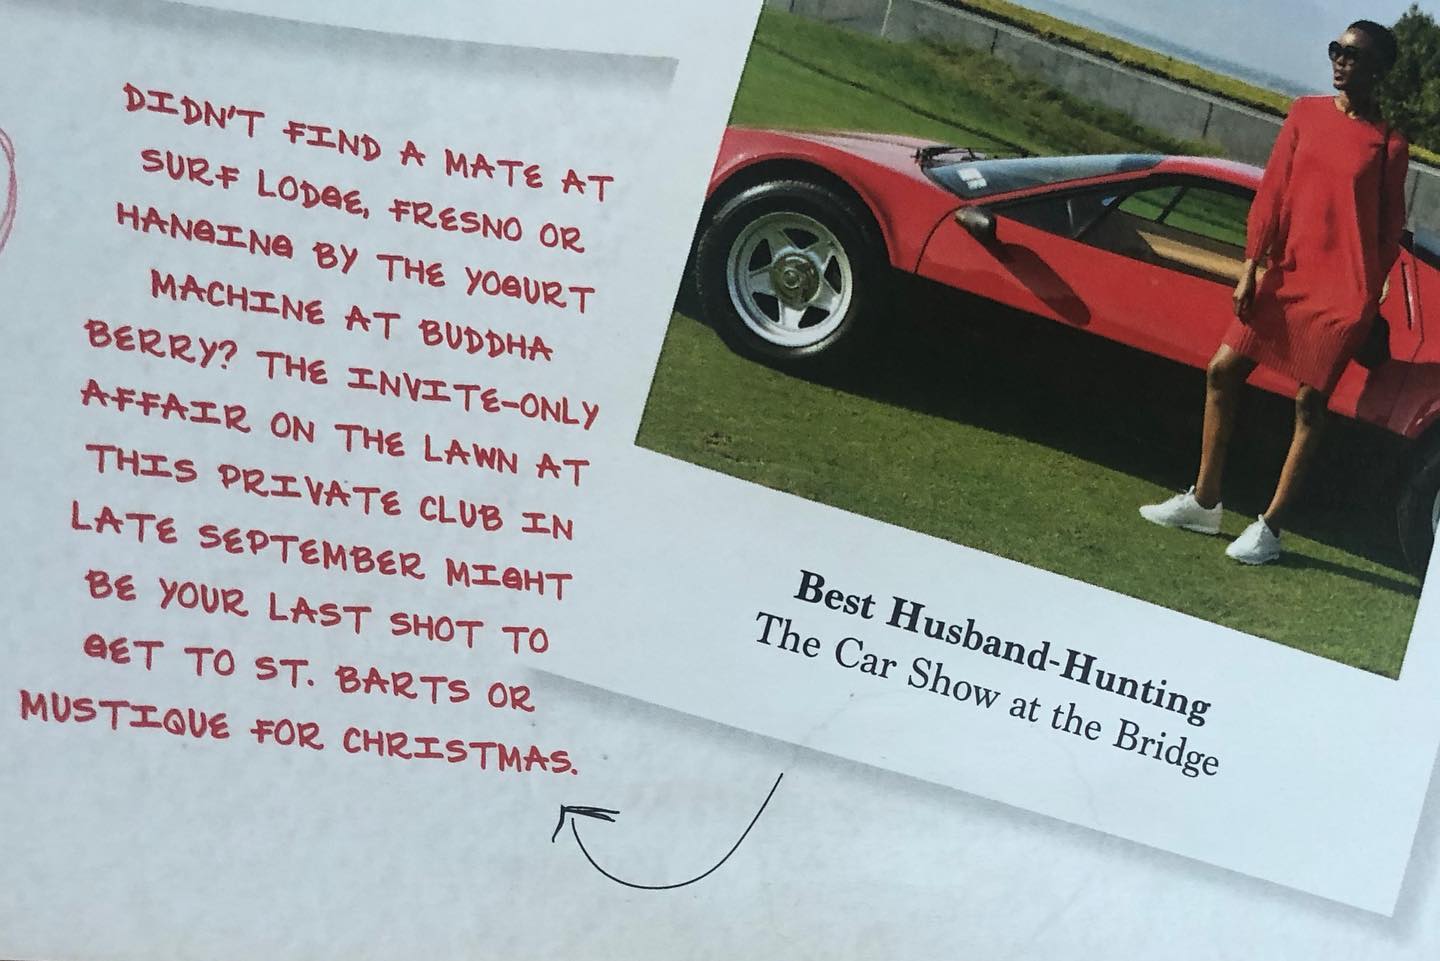 DIDN'T FIND A MATE AT
SURF LODGE, FRESNO OR
HANGING BY THE YOGURT
MACHINE AT BUDDHA
BERRY? THE INVITE-ONLY
AFFAIR ON THE LAWN AT
THIS PRIVATE CLUB IN
LATE SEPTEMBER MIGHT
BE YOUR LAST SHOT TO
GET TO ST. BARTS OR
MUSTIQUE FOR CHRISTMAS.
Best Husband-Hunting
The Car Show at the Bridge